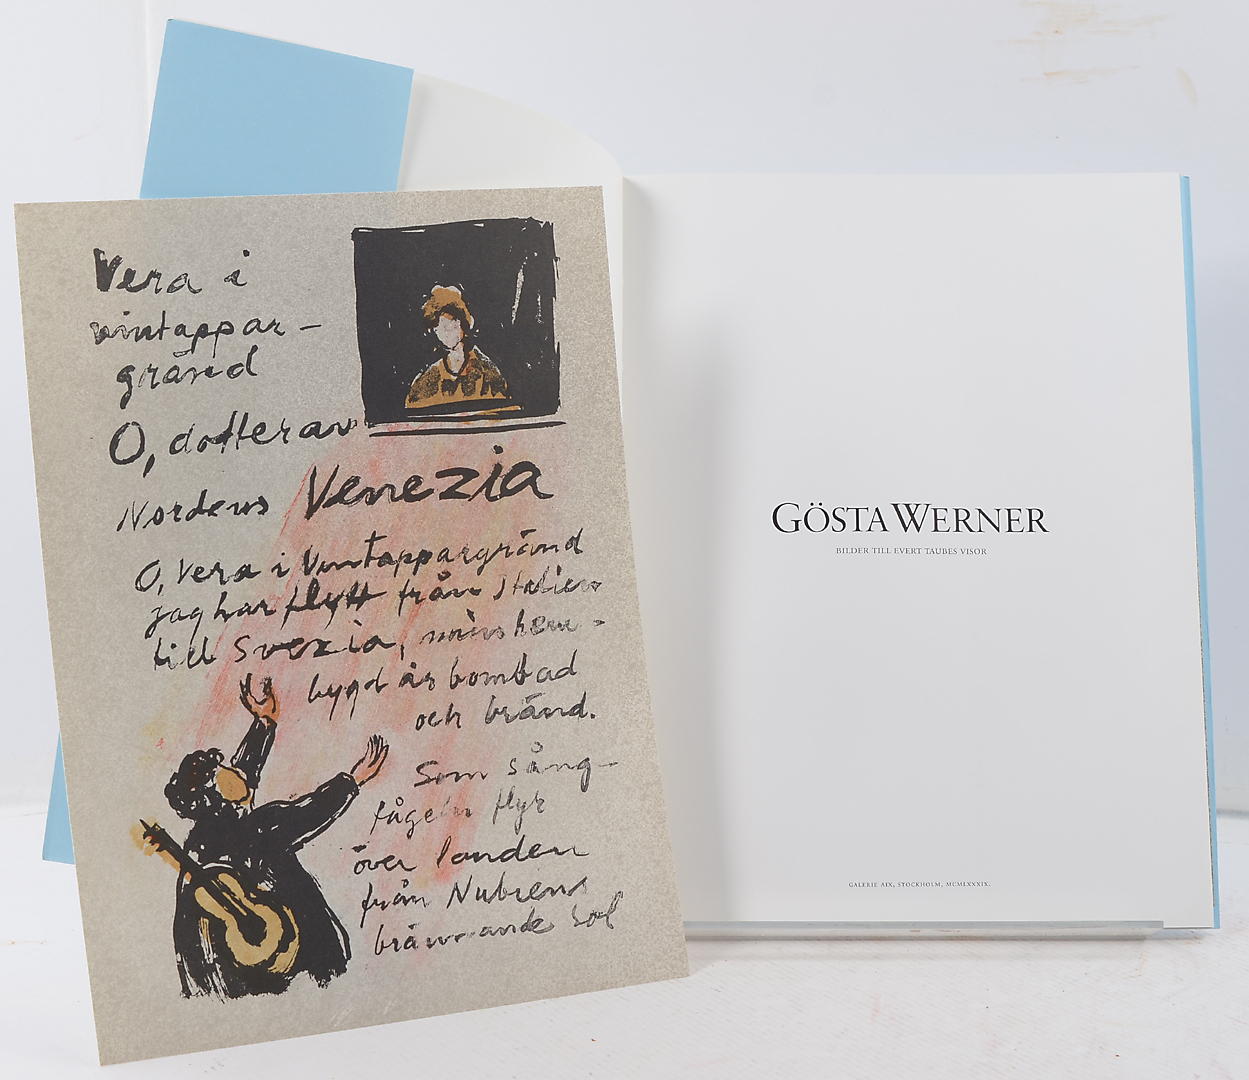 Vera i
vintappar-
gränd
O, dotter av
Nordens Venezia
O, Vera i Vintappargränd
jag har flytt från Italien
till Svezia, min hem-
bygd är bombad
och bränd.
Som sång-
fågeln flyr
över landen
från Nubiens
brännande sol
GÖSTA WERNER
BILDER TILL EVERT TAUBES VISOR
GALERIE AIX, STOCKHOLM, MCMLXXXIX.